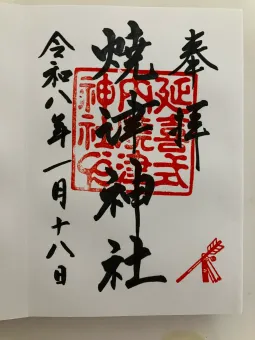 奉拝
延喜式
内焼津
神社印
焼津神社
令和八年一月十八日